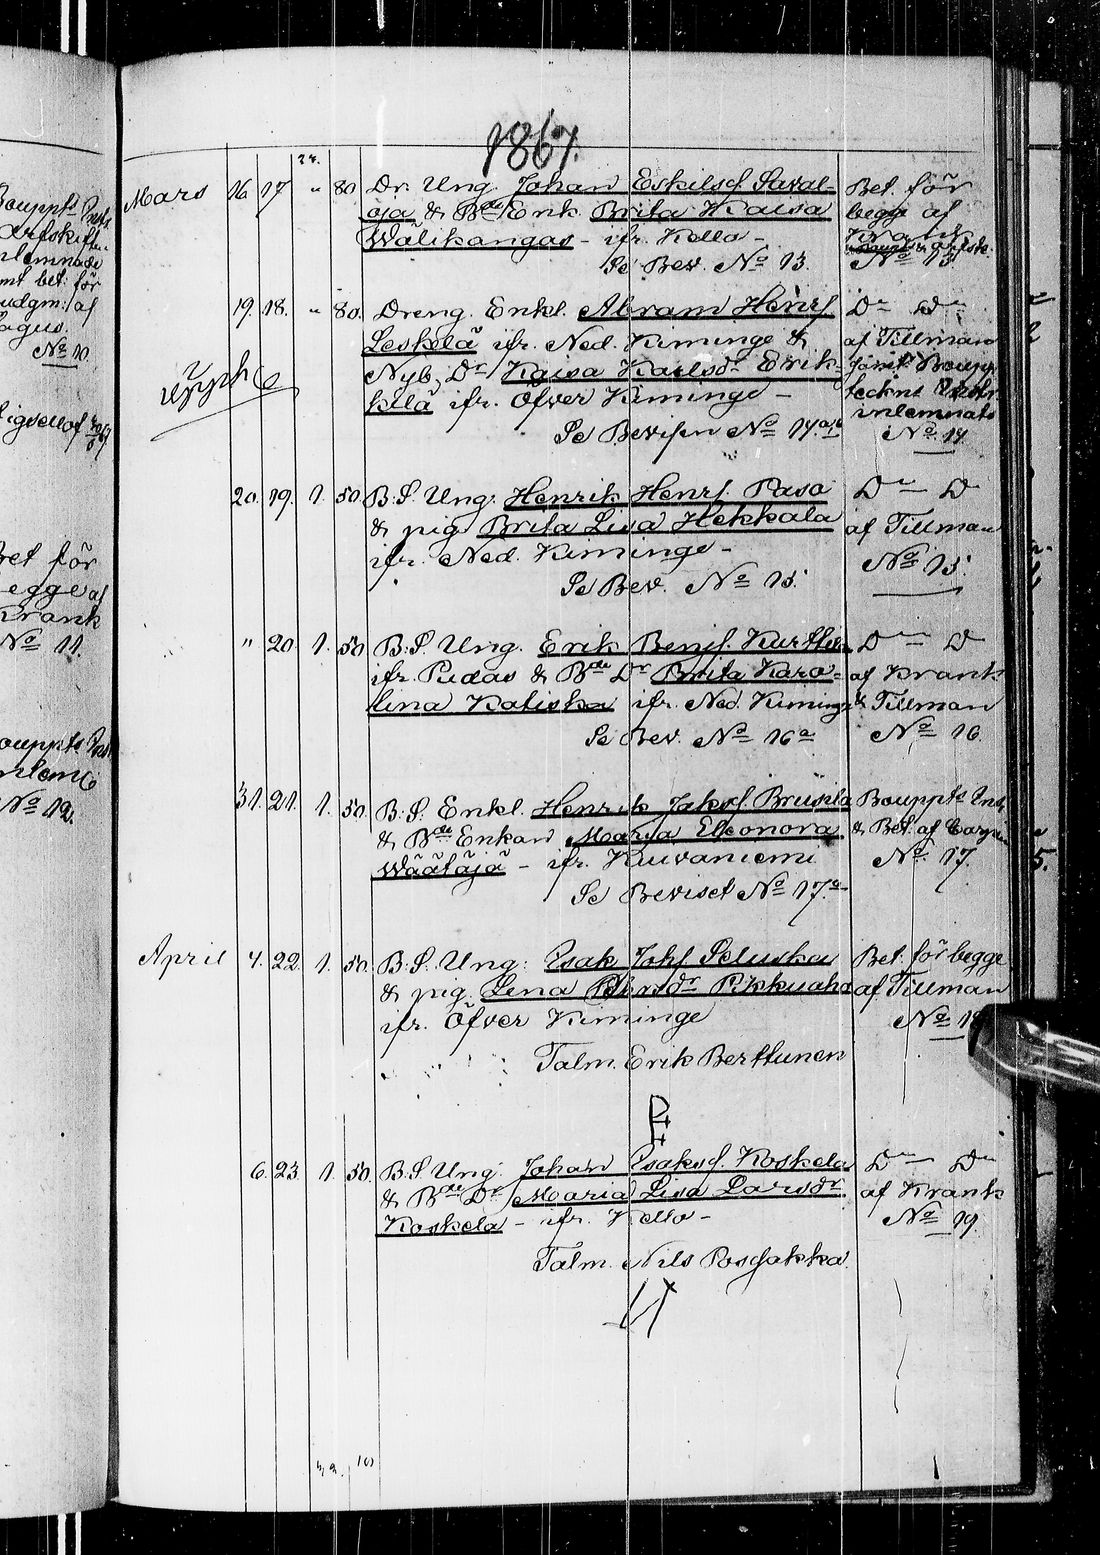 1867.
Mars 16 17 " 80 Dr. Ung. Johan Eskilsd. Saval-
oja & Bde Enk. Brita Kaisa
Wälikangas - ifr. Kello -
Se Bev. No 13.
Bet. för
begge af
Krank
No 13
19. 18. " 80. Dreng. Enkl. Abram Henrs.
Leskelä ifr. Ned. Kiminge &
Nyb. Dr Kaisa Karlsdr Erik-
kilä ifr. Öfver Kiminge -
Se Bevisen No 14
Dr Dr
af Tillman
jämt Boupp
teckns
inlemnats
No 14
20. 19. 1. 50. B.S. Ung. Henrik Henrs. Paso
& pig. Brita Lisa Hekkala
ifr. Ned. Kiminge -
Se Bev. No 15.
Dr D
af Tillman
No 15
" 20. 1. 50 B.S. Ung. Erik Benjs.
ifr. Pudas & Bde Dr Brita Karo-
lina Katiska ifr. Ned. Kiminge
Se Bev. No 16a
Dr D
af Krank
& Tillman
No 16.
31. 21. 1. 50. B.S. Enkl. Henrik Jaksd. Brusila
& Bde Enkan Maria Eleonora
Wäätäjä - ifr. Kuivaniemi
Se Beviset No 17.a
Bouppts Inst.
& Bet. af
No 17.
April 4. 22. 1. 50. B.S. Ung. Esak Johs.
& pig. Lena Persdr Pikkuaho
ifr. Öfver Kiminge
Talm. Erik Berttunen
Bet. för begge
af Tillman
No 18
6. 23. 1. 50. B.S. Ung. Johan Esaksd. Koskela
& Bde Dr Maria Lisa Larsdr.
Koskela - ifr. Kello -
Talm. Nils Posjakka.
Dr Dr
af Krank
No 19.
No 10.
Bet för
begge af
Krank
No 11.
No 12.